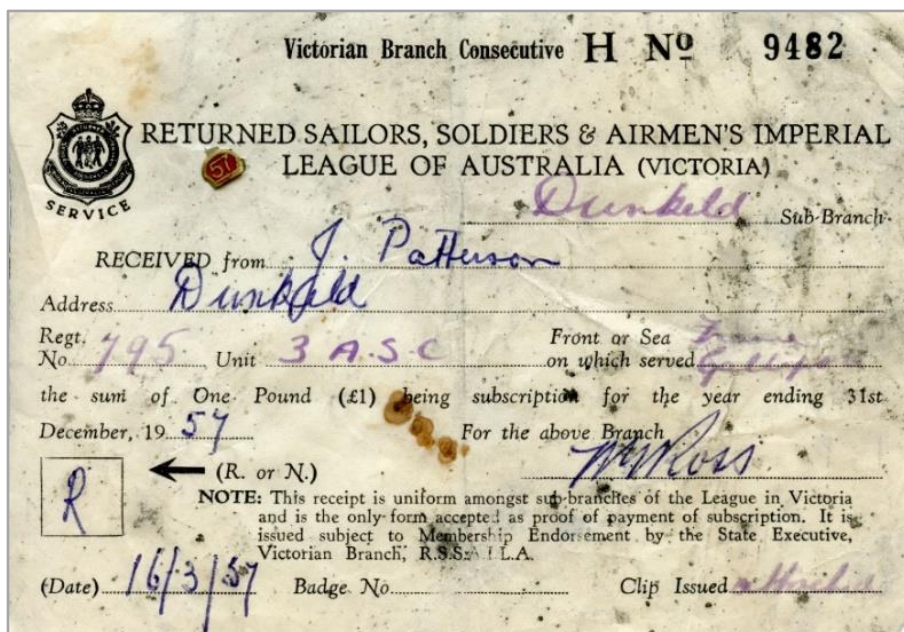 Victorian Branch Consecutive H Nº 9482
RETURNED SAILORS, SOLDIERS & AIRMEN'S IMPERIAL
LEAGUE OF AUSTRALIA (VICTORIA)
57
SERVICE
Dunkeld Sub-Branch
RECEIVED from J. Patterson
Address Dunkeld
Regt. Front or Sea France
No 795 Unit 3 A.S.C on which served Gallipoli
the sum of One Pound (£1) being subscription for the year ending 31st
December, 1957 For the above Branch
R (R. or N.) Ross
NOTE: This receipt is uniform amongst sub-branches of the League in Victoria
and is the only form accepted as proof of payment of subscription. It is
issued subject to Membership Endorsement by the State Executive,
Victorian Branch, R.S.S.A.I.L.A.
(Date) 16/3/57 Badge No Clip Issued attached